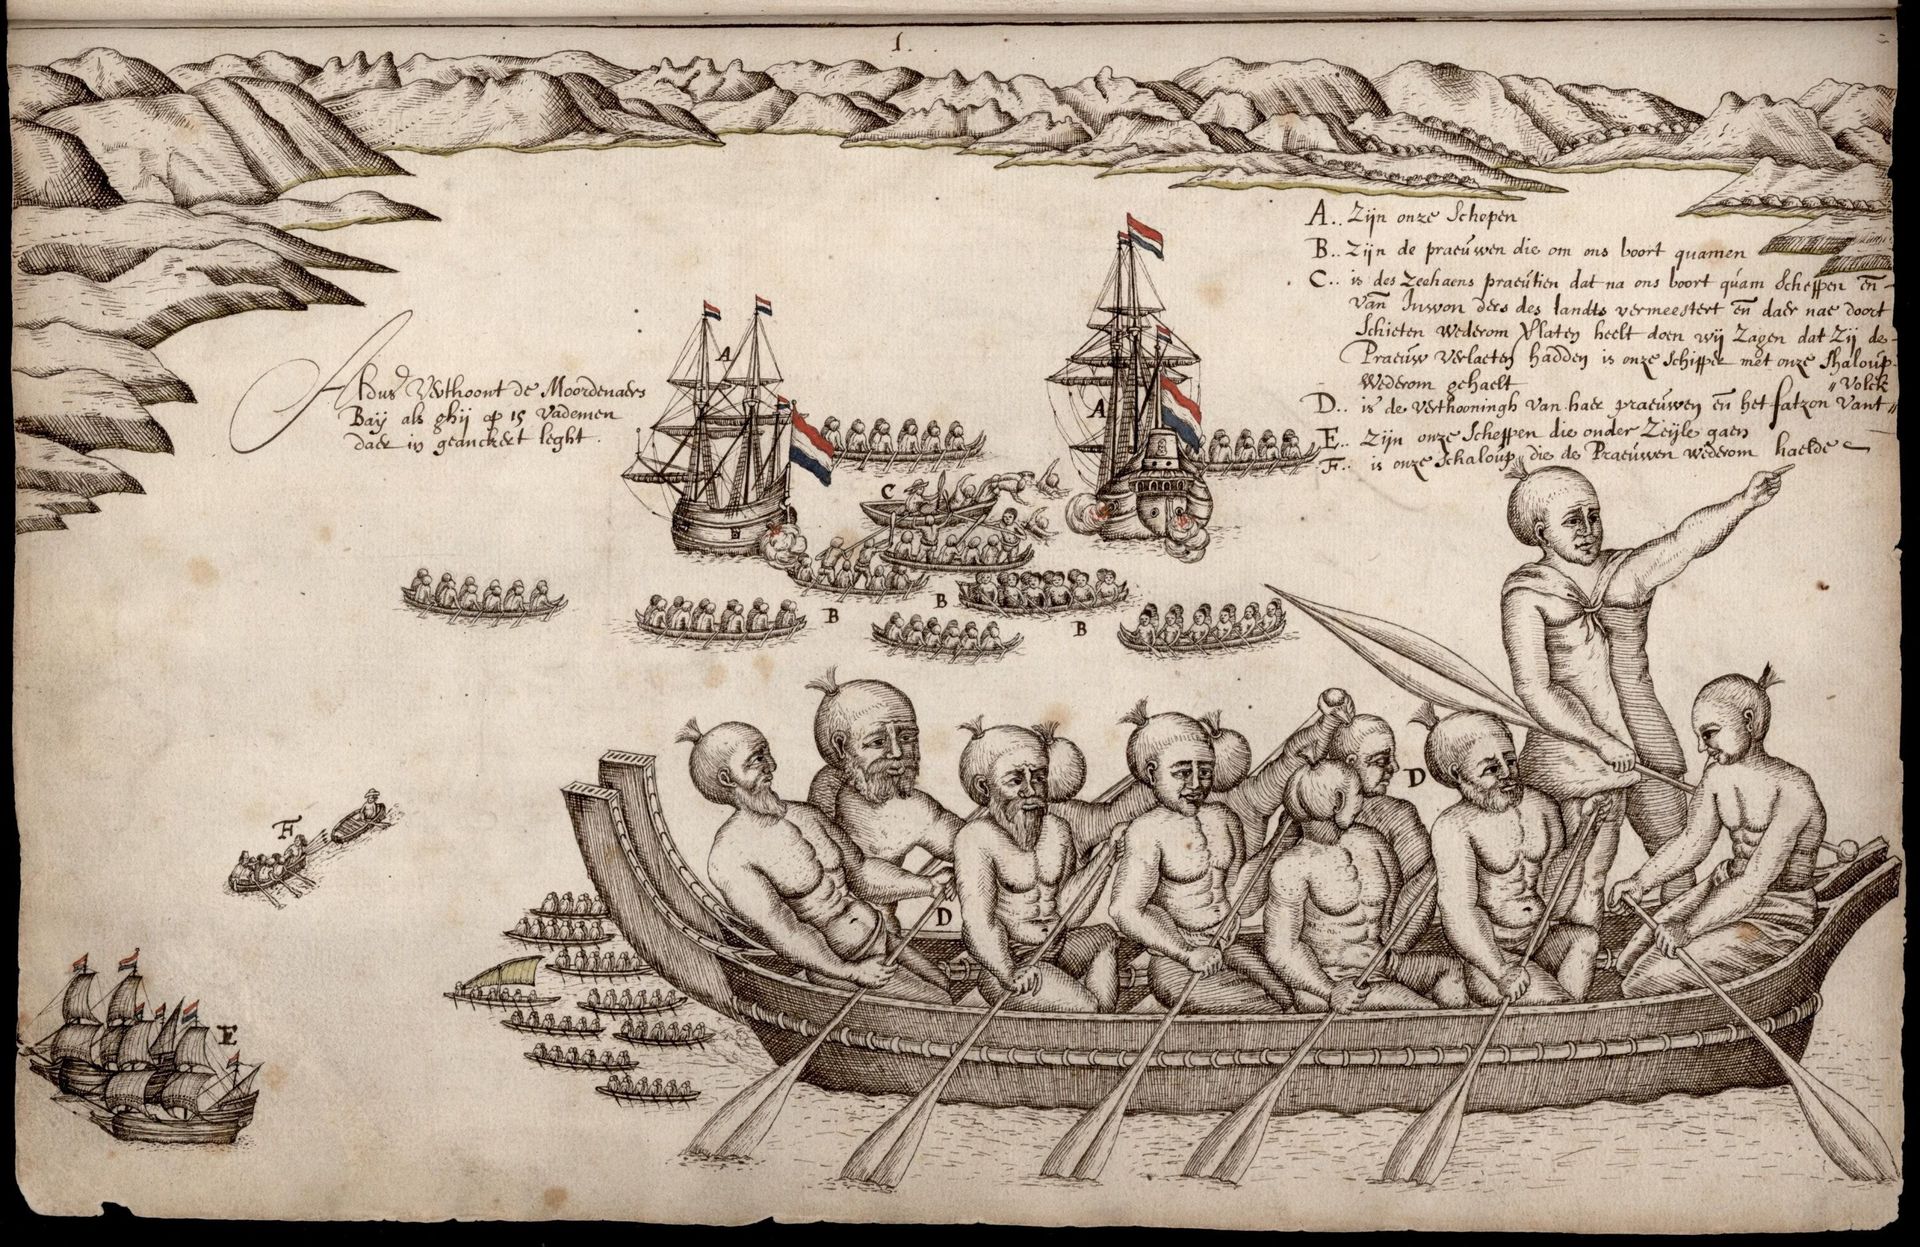 1.
A.. Zijn onze Schepen
B.. Zijn de praeuwen die om ons boort quamen
C.. is des Zeehaens praeutien dat na ons boort quam Scheppen en
van Inwon ders des landts vermeestert en daer nae doort
Schieten wederom Verlaten heelt doen wij Zagen dat Zij de
Praeuw Verlaeten hadden is onze Schipper met onze Shaloup
Wederom gehaelt
"Volck
D.. is de Verthooningh van haer praeuwen en het fatzon vant
E.. Zijn onze Scheppen die onder Zeijle gaen
F.. is onze Schaloup die de Praeuwen wederom haelde
Aldus Verthoont de Moordenaers
Baij als ghij op 15 Vademen
daer in geanckert leght.
A
A
B
B
B
C
D
D
E
F